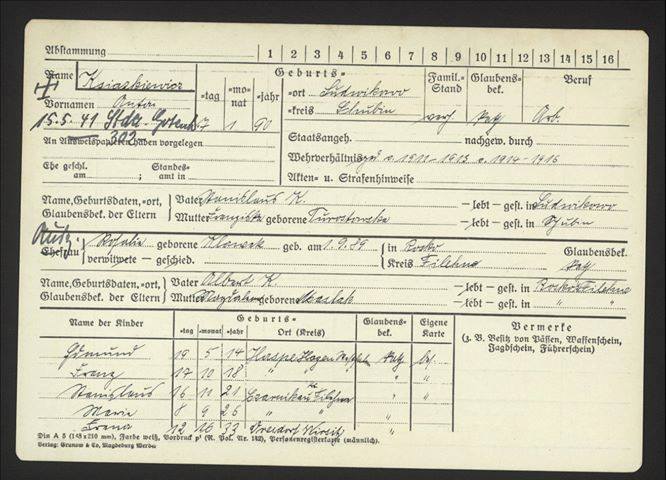 Abstammung 1 2 3 4 5 6 7 8 9 10 11 12 13 14 15 16
Name Ksiaskiewicz Geburts- Famil.- Stand Glaubens- bek. Beruf
-tag -mo- nat -jahr -ort Ludwikowo
Vornamen Anton -kreis Schubin verh kath Arb.
15.5.41 Stda. Gotenh 7 1 90
302
An Ausweispapieren haben vorgelegen Staatsangeh. nachgew. durch
Wehrverhältnis ged. v. 1911-1913 v. 1914-1918
Ehe geschl. am Standes- amt in Akten- u. Strafenhinweise
Name, Geburtsdaten, -ort, Vater Stanislaus K. lebt - gest. in Ludwikowo
Glaubensbek. der Eltern Mutter Franziska geborene lebt - gest. in Schubin
Ehefrau Rosalie geborene geb. am 1.9.89 in Rosko Glaubensbek.
verwitwete - geschied. Kreis Filehne kath
Name, Geburtsdaten, -ort, Vater Albert K. lebt - gest. in Rosko Filehne
Glaubensbek. der Eltern Mutter geborene lebt - gest. in " "
Name der Kinder Geburts- Glaubens- bek. Eigene Karte Vermerke
-tag -monat -jahr Ort (Kreis) (z. B. Besitz von Pässen, Waffenschein, Jagdschein, Führerschein)
19 5 14 Haspe Hagen Westfal kath
Franz 17 10 18 " " "
Stanislaus 16 11 21 Czarnikau Filehne " "
Marie 8 9 26 " " "
Irena 12 10 33 Wirsitz "
Din A 5 (148x210 mm), Farbe weiß, Vordruck p' (R. Pol. Nr. 182), Personenregisterkarte (männlich).
Verlag: Grunow & Co, Magdeburg Werder